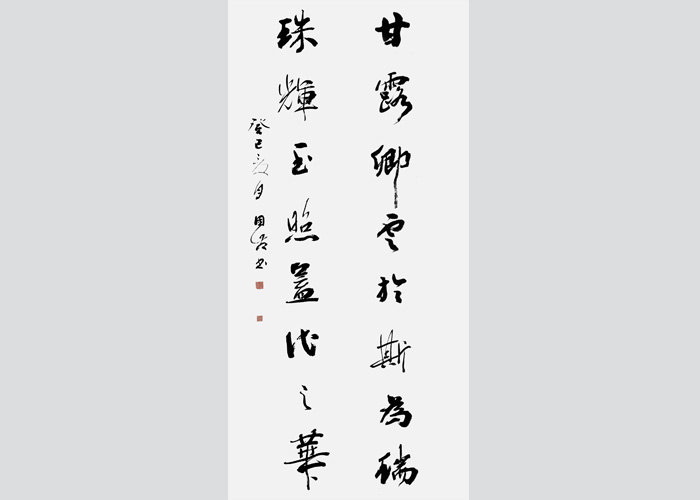 甘露卿雲於斯為瑞
珠輝玉照蓋代之華
癸巳月田書